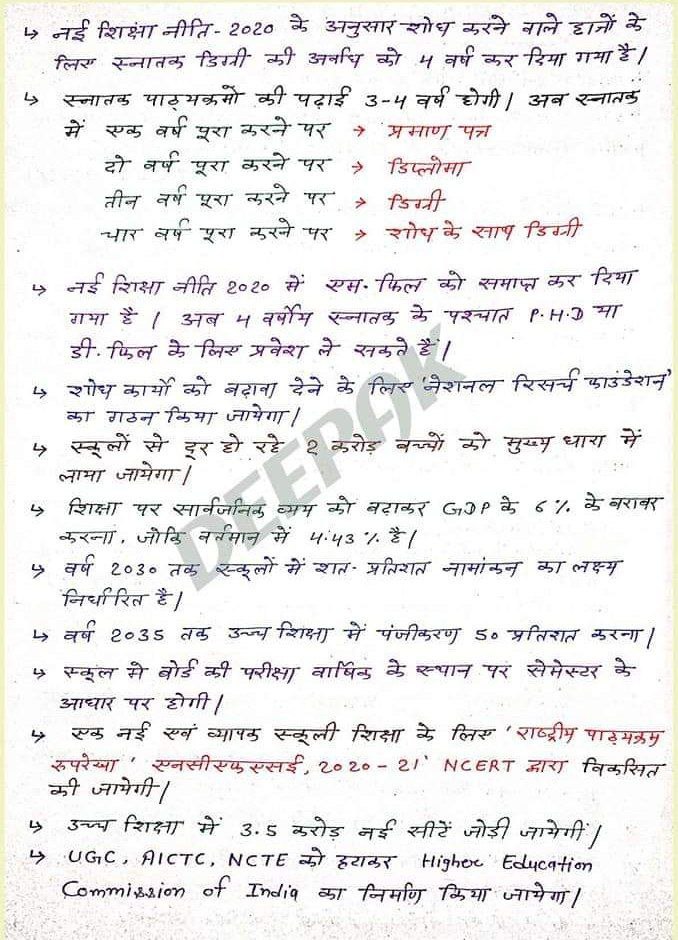 ↳ नई शिक्षा नीति - 2020 के अनुसार शोध करने वाले छात्रों के
लिए स्नातक डिग्री की अवधि को 4 वर्ष कर दिया गया है।
↳ स्नातक पाठ्यक्रमों की पढ़ाई 3-4 वर्ष होगी। अब स्नातक
में एक वर्ष पूरा करने पर → प्रमाण पत्र
दो वर्ष पूरा करने पर → डिप्लोमा
तीन वर्ष पूरा करने पर → डिग्री
चार वर्ष पूरा करने पर → शोध के साथ डिग्री
↳ नई शिक्षा नीति 2020 में एम.फिल को समाप्त कर दिया
गया है। अब 4 वर्षीय स्नातक के पश्चात P.H.D या
डी.फिल के लिए प्रवेश ले सकते हैं।
↳ शोध कार्यो को बढ़ावा देने के लिए 'नेशनल रिसर्च फाउंडेशन'
का गठन किया जायेगा।
↳ स्कूलों से दूर हो रहे 2 करोड़ बच्चों को मुख्य धारा में
लाया जायेगा।
↳ शिक्षा पर सार्वजनिक व्यय को बढ़ाकर GDP के 6% के बराबर
करना, जोकि वर्तमान में 4.43% है।
↳ वर्ष 2030 तक स्कूलों में शत-प्रतिशत नामांकन का लक्ष्य
निर्धारित है।
↳ वर्ष 2035 तक उच्च शिक्षा में पंजीकरण 50 प्रतिशत करना।
↳ स्कूल मे बोर्ड की परीक्षा वार्षिक के स्थान पर सेमेस्टर के
आधार पर होगी।
↳ एक नई एवं व्यापक स्कूली शिक्षा के लिए 'राष्ट्रीय पाठ्यक्रम
रुपरेखा' एनसीएफएसई, 2020-21' NCERT द्वारा विकसित
की जायेगी।
↳ उच्च शिक्षा में 3.5 करोड़ नई सीटें जोड़ी जायेगीं।
↳ UGC, AICTC, NCTE को हटाकर Higher Education
Commission of India का निर्माण किया जायेगा।
DEEPAK